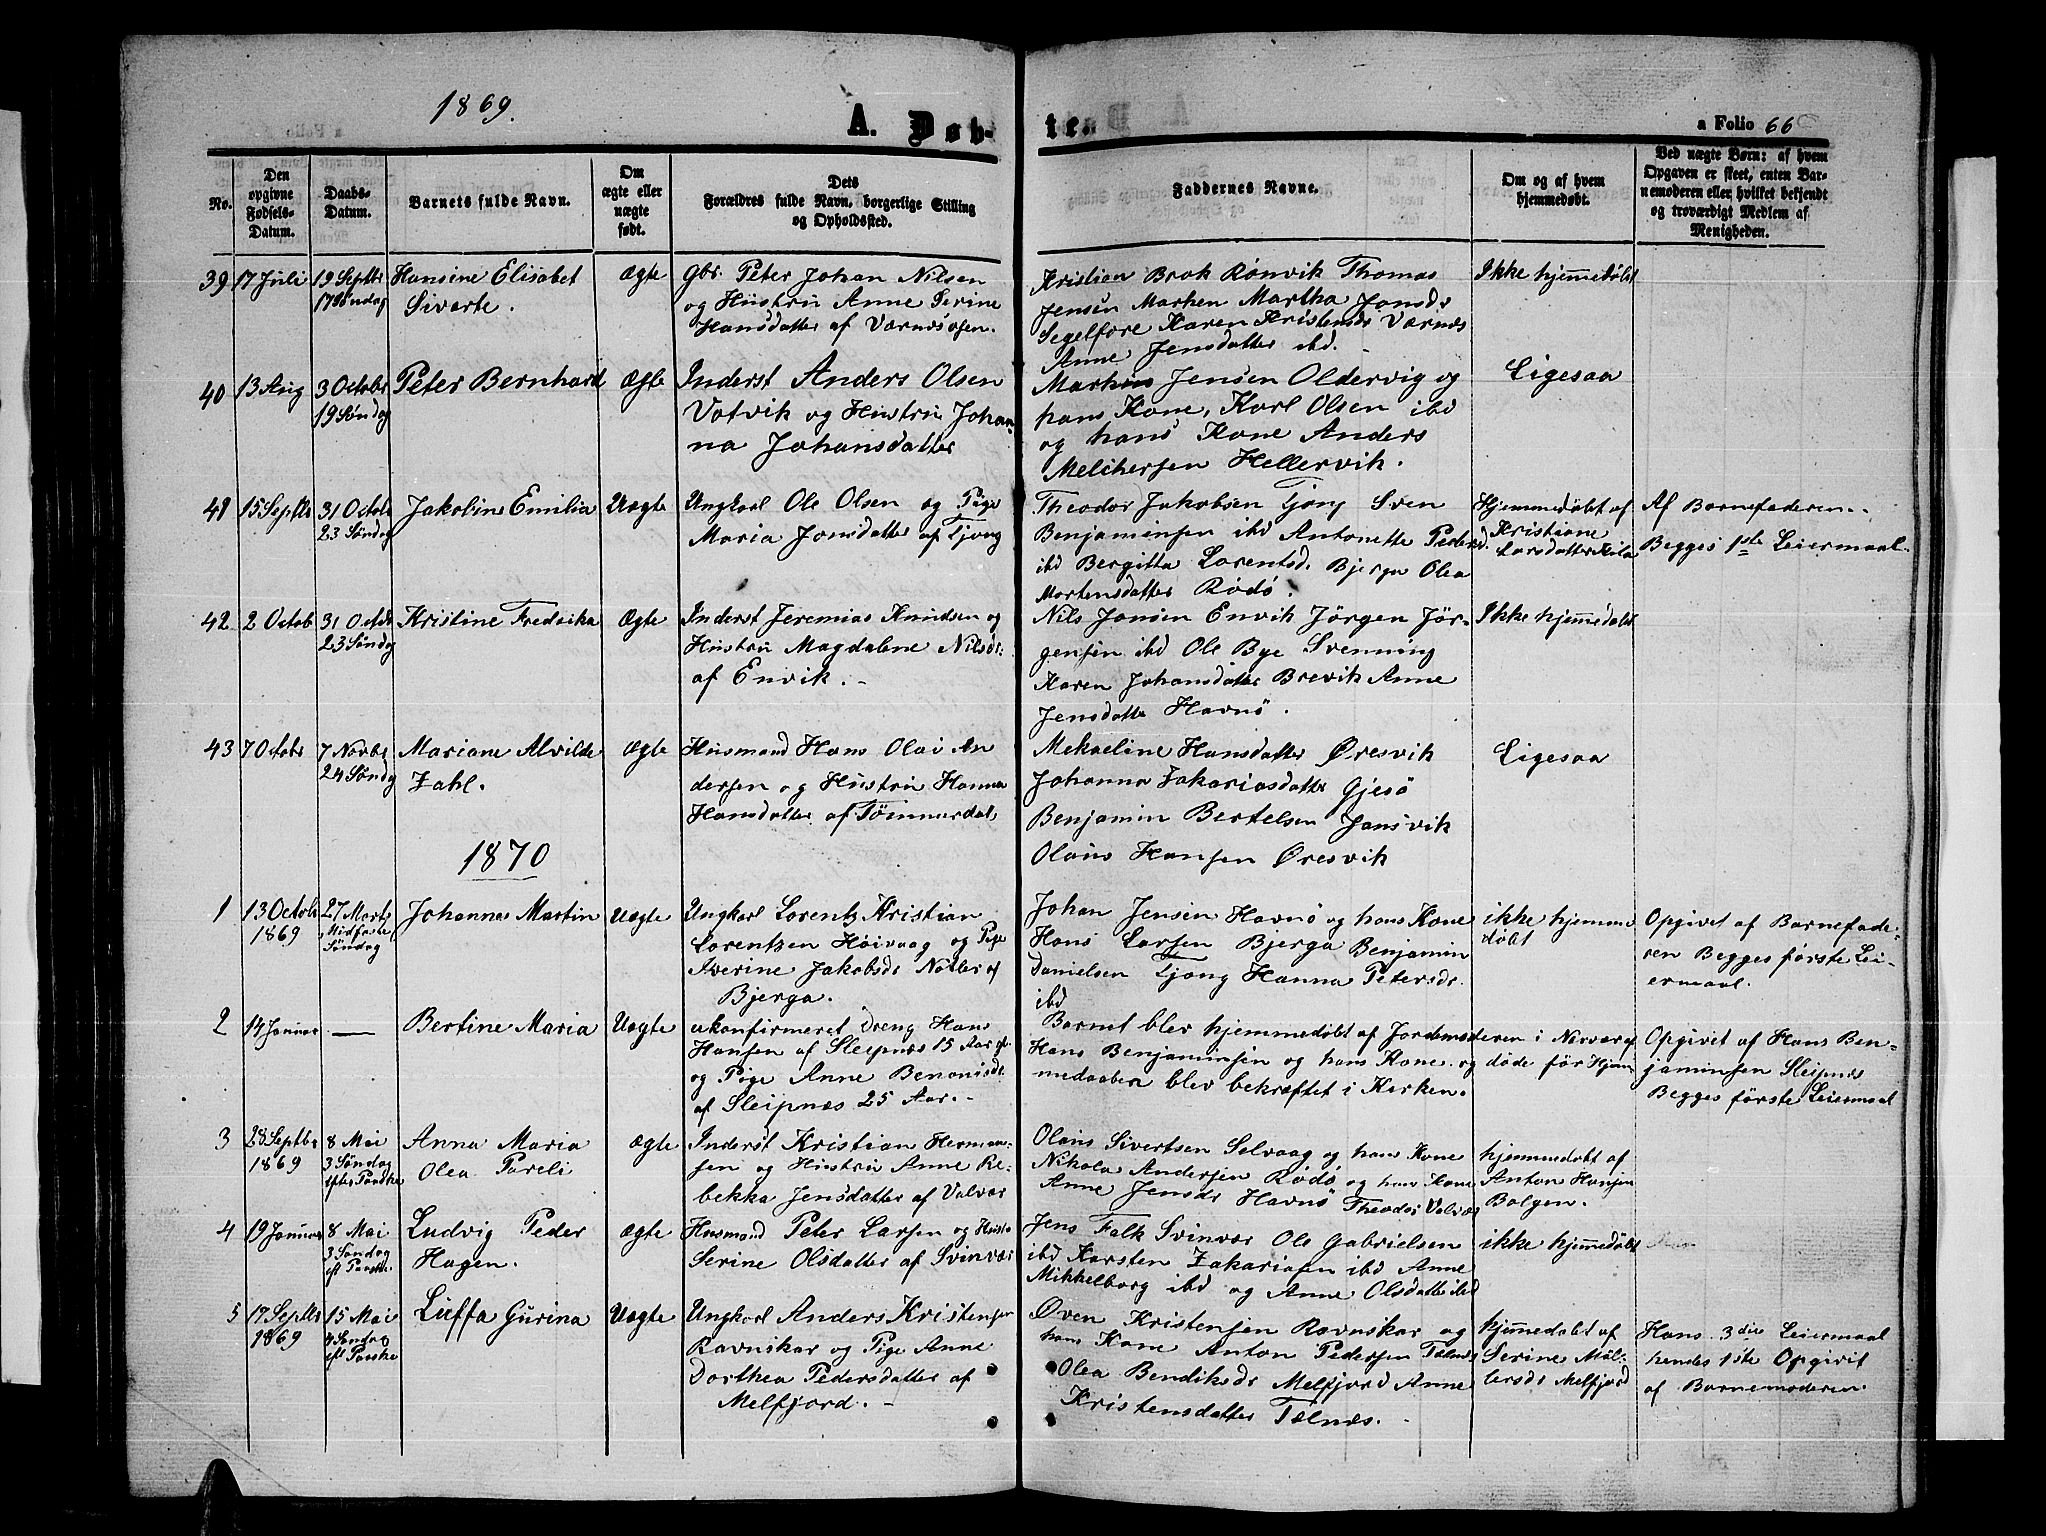 1869.
A. Døb-
te.
a Folio 66
No.
Den
opgivne
Fødsels-
Datum.
Daabs-
Datum.
Barnets fulde Navn.
Om
ægte eller
uægte
født.
Dets
Forældres fulde Navn, borgerlige Stilling
og Opholdssted.
Faddernes Navne.
Om og af hvem
hjemmedøbt.
Ved uægte Børn: af hvem
Opgaven er skeet, enten Bar-
nemoderen eller hvilket bekjendt
og troværdigt Medlem af
Menigheden.
39
17 Juli
19 Septbr
17 Søndag
Hansine Elisabet
Sivarte.
Ægte
Gbr. Peter Johan Nilsen
og Hustru Anne Serine
Hansdatter af Værnæsosen.
Kristian Brok Rønvik Thomas
Jensen Marken Martha Jonsdr
Segelfore Karen Kristensdr Værnæs
Anne Jensdatter ibd.
Ikke hjemmedøbt
40
13 Aug
3 Octobr
19 Søndag
Peter Bernhard
Ægte
Inderst Anders Olsen
Votvik og Hustru Johan-
na Johansdatter
Markus Jensen Oldervig og
hans Kone, Karl Olsen ibd
og hans Kone Anders
Melchersen Hellervik.
Ligesaa
41
15 Septbr
31 Octobr
23 Søndag
Jakoline Emilia
Uægte
Ungkarl Ole Olsen og Pige
Maria Jonsdatter af Tjong
Theodor Jakobsen Tjong Sven
Benjaminsen ibd Antonette Pedersd.
ibd Bergitta Lorentsd. Bjerga Olea
Mortensdatter Rødø.
Hjemmedøbt af
Kristiane
Larsdatter Kila
Af Barnefaderen.
Begges 1ste Leiermaal.
42
2 Octob
31 Octbr
23 Søndag
Kristine Fredrika
Ægte
Inderst Jeremias Knudsen og
Hustru Magdalene Nilsdr.
af Envik.
Nils Jonsen Envik Jørgen Jør-
gensen ibd Ole Bye Svenning
Karen Johansdatter Brevik Anne
Jensdatter Havnø.
Ikke hjemmedøbt
43
7 Octobr
7 Novbr
24 Søndag
Mariane Alvilde
Zahl.
Ægte
Husmand Hans Olai An
dersen og Hustru Hanna
Hansdatter af Tømmerdal,
Mekaeline Hansdatter Øresvik
Johanna Zakariasdatter Gjesø
Benjamin Bertelsen Jonsvik
Olaus Hansen Øresvik
Ligesaa
1870
1
13 Octob
1869
27 Marts
Midfaste
Søndag
Johannes Martin
Uægte
Ungkarl Lorentz Kristian
Lorentzen Høivaag og Pige
Iverine Jakobsdr Notler af
Bjerga.
Johan Jensen Havnø og hans Kone
Hans Larsen Bjerga Benjamin
Danielsen Tjong Hanna Petersdr.
ibd
ikke hjemme
døbt
Opgivet af Barnefade-
ren Begges første Lei-
ermaal.
2
14 Januar
—
Bertine Maria
Uægte
ukonfirmeret Dreng Hans
Hansen af Sleipnæs 15 Aar gl.
og Pige Anne Benonisdr.
af Sleipnæs 25 Aar.
Barnet blev hjemmedøbt af Jordemoderen i Nærvær af
Hans Benjaminsen og hans Kone og døde før Hjem
medaaben blev bekræftet i Kirken.
Opgivet af Hans Ben-
jaminsen Sleipnæs
Begges første Leiermaal
3
28 Septbr
1869
8 Mai
3 Søndag
efter Paaske
Anna Maria
Olea Pareli
Ægte
Inderst Kristian Herman-
sen og Hustru Anne Re-
bekka Jensdatter af Valvær
Olaus Sivertsen Selvaag og hans Kone
Nikolai Andersen Rødø og hans Kone
Anne Jensdr Havnø Theodor Valvær
hjemmedøbt af
Anton Hansen
Bolgen.
4
19 Januar
8 Mai
3 Søndag
eft Paaske.
Ludvig Peder
Hagen.
Ægte
Husmand Peter Larsen og Hustr
Serine Olsdatter af Svinvær
Jens Falk Svinvær Ole Gabrielsen
ibd Karsten Zakariasen ibd Anne
Mikkelborg ibd og Anne Olsdatter ibd
ikke hjemmedøbt
5
17 Septbr
1869
15 Mai
4 Søndag
eft Paaske
Luffa Gurina
Uægte
Ungkarl Anders Kristensen
Ravnskar og Pige Anne
Dorthea Pedersdatter af
Melfjord.
Øven Kristensen Ravnskar og
hans Kone Anton Pedersen Telnæs
Olea Bendiksdr Melfjord Anne
Kristensdatter Telnæs.
hjemmedøbt af
Serine Møl-
lersdr Melfjord
Hans 3die Leiermaal
hendes 1ste Opgivet
af Barnemoderen.